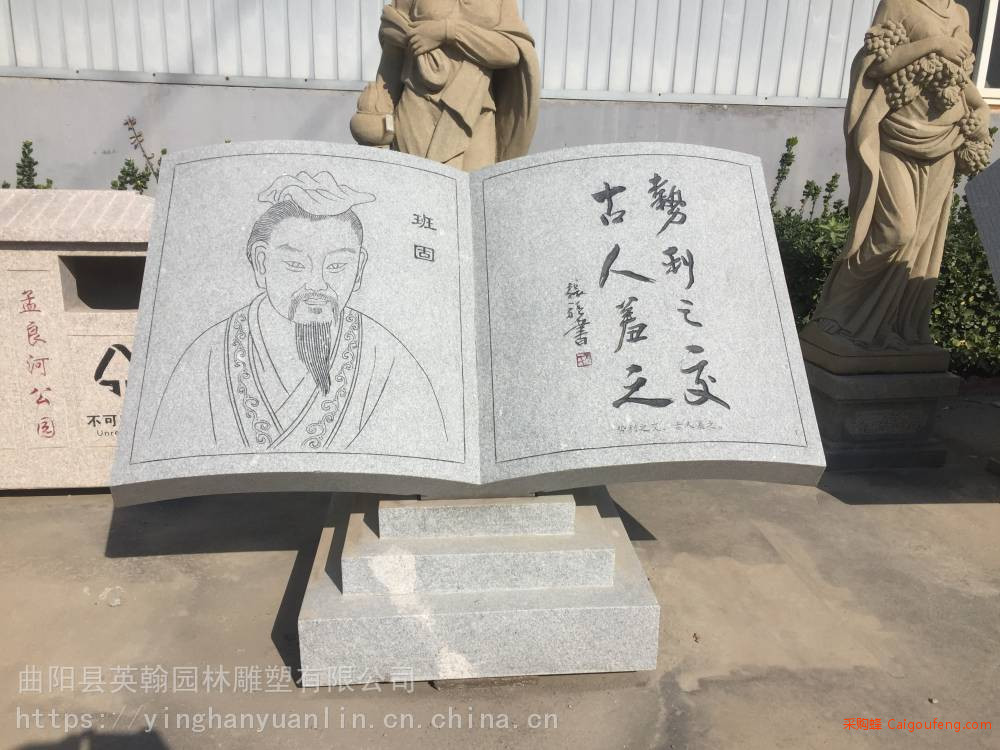 班固
勢利之交
古人羞之
張
書
势利之交，古人羞之。
孟良河公园
不可
Unre
曲阳县英翰园林雕塑有限公司
https://yinghanyuanlin.cn.china.cn
采购蜂 Caigoufeng.com